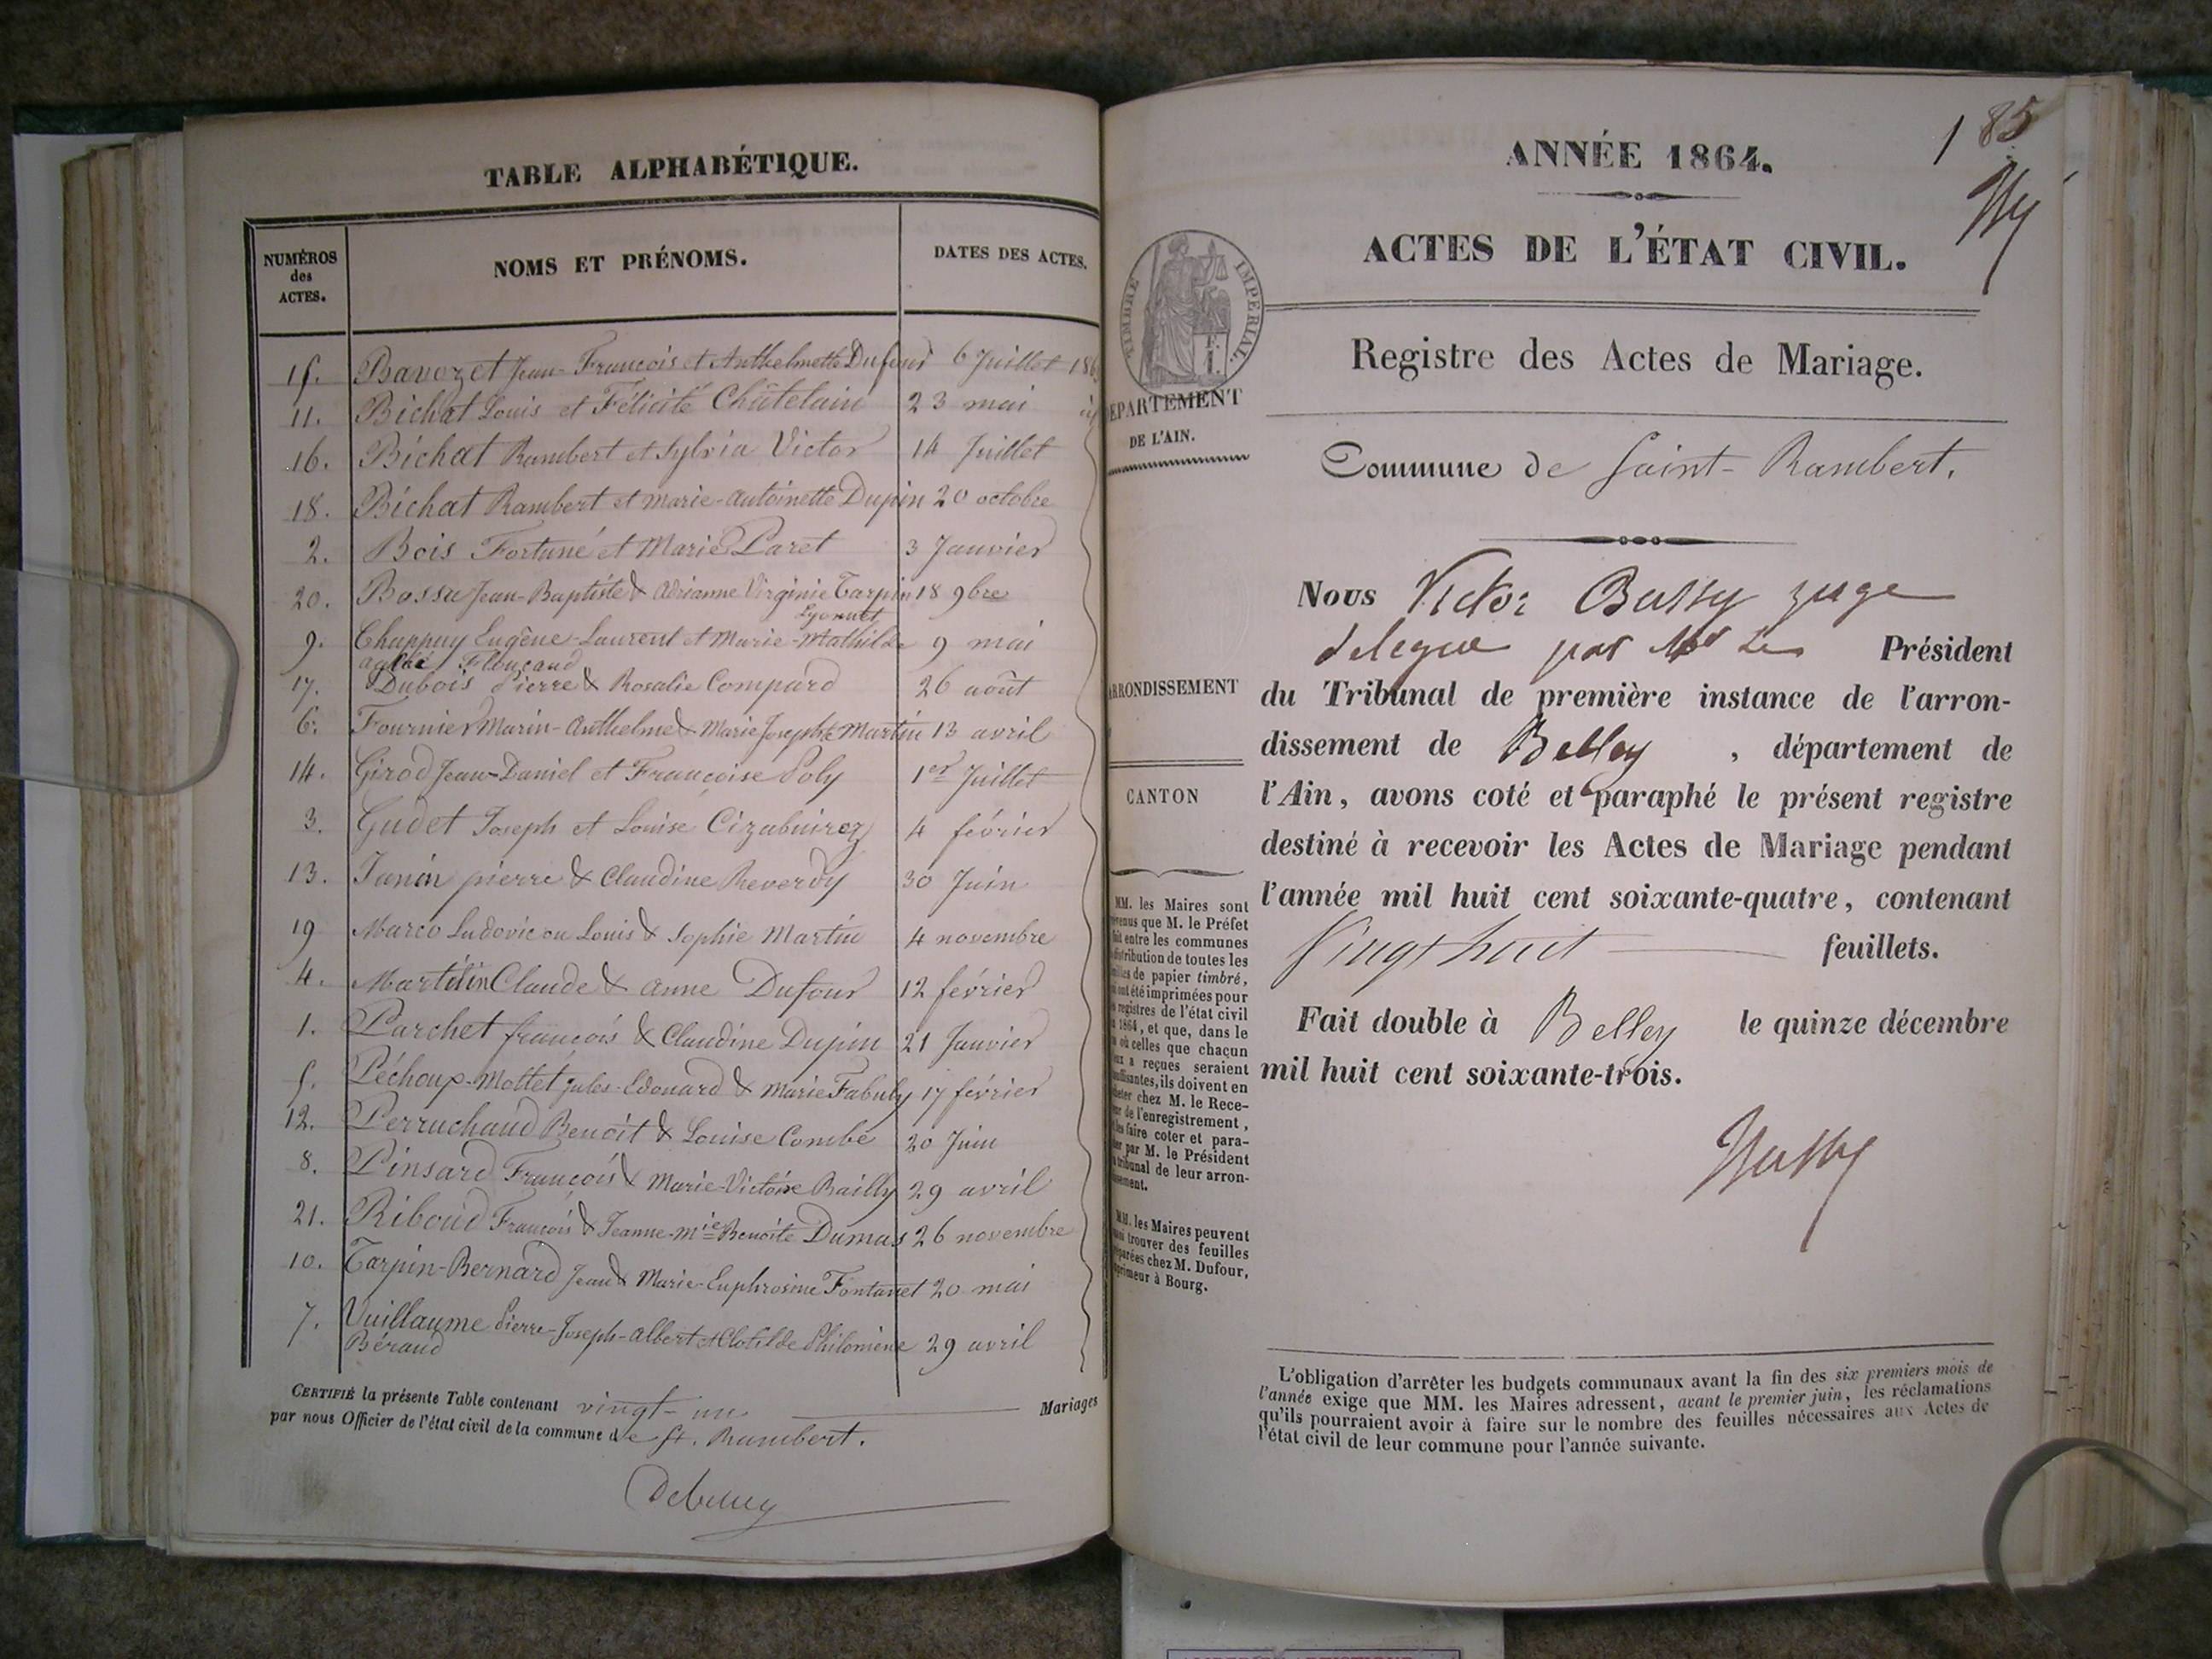 TABLE ALPHABÉTIQUE.
NUMÉROS des ACTES. NOMS ET PRÉNOMS. DATES DES ACTES.
15. Bavozet Jean-François et Anthelmette Dufour 6 Juillet 186
11. Bichat Louis et Félicité Châtelain 23 mai
16. Bichat Rambert et Sylvia Victor 14 Juillet
18. Bichat Rambert et Marie-Antoinette Dupin 20 octobre
2. Bois Fortuné et Marie Paret 3 Janvier
20. Bossu Jean-Baptiste & Adrianne Virginie Tarpin 18 9bre
Lyonnet
9. Chappuy Eugène-Laurent et Marie-Mathilde 9 mai
aglaé Flouçaud
17. Dubois Pierre & Rosalie Compard 26 août
6. Fournier Marin-Anthelme & Marie Josephte Martin 13 avril
14. Girod Jean-Daniel et Françoise Poly 1er Juillet
3. Gudet Joseph et Louise Cizabuiroz 4 février
13. Janin pierre & Claudine Reverdy 30 Juin
19 Marco Ludovic ou Louis & Sophie Martin 4 novembre
4. Martin Claude & Anne Dufour 12 février
1. Parchet françois & Claudine Dupin 21 Janvier
5. Péchoup-Mottet Jules-Edouard & Marie Fabuly 17 février
12. Perruchaud Benoît & Louise Combe 20 Juin
8. Pinsard François & Marie-Victoire Bailly 29 avril
21. Riboud François & Jeanne-Mie Benoîte Dumas 26 novembre
10. Tarpin-Bernard Jean & Marie-Euphrosine Fontanet 20 mai
7. Vuillaume Pierre-Joseph-Albert et Clotilde Philomène 29 avril
Béraud
CERTIFIÉ la présente Table contenant vingt-un Mariages
par nous Officier de l'état civil de la commune de St. Rambert.
Debeney
185
ANNÉE 1864.
ACTES DE L'ÉTAT CIVIL.
TIMBRE IMPÉRIAL.
Registre des Actes de Mariage.
DÉPARTEMENT
DE L'AIN.
Commune de Saint-Rambert.
Nous Victor Bussy juge
délégué par Mr Le Président
ARRONDISSEMENT
du Tribunal de première instance de l'arron-
dissement de Belley, département de
CANTON
l'Ain, avons coté et paraphé le présent registre
destiné à recevoir les Actes de Mariage pendant
l'année mil huit cent soixante-quatre, contenant
Vingt huit feuillets.
Fait double à Belley le quinze décembre
mil huit cent soixante-trois.
Bussy
MM. les Maires sont
que M. le Préfet
entre les communes
distribution de toutes les
de papier timbré,
ont été imprimées pour
registres de l'état civil
1864, et que, dans le
où celles que chacun
a reçues seraient
ils doivent en
chez M. le Rece-
de l'enregistrement,
les faire coter et para-
par M. le Président
tribunal de leur arron-
MM. les Maires peuvent
trouver des feuilles
chez M. Dufour,
à Bourg.
L'obligation d'arrêter les budgets communaux avant la fin des six premiers mois de
l'année exige que MM. les Maires adressent, avant le premier juin, les réclamations
qu'ils pourraient avoir à faire sur le nombre des feuilles nécessaires aux Actes de
l'état civil de leur commune pour l'année suivante.